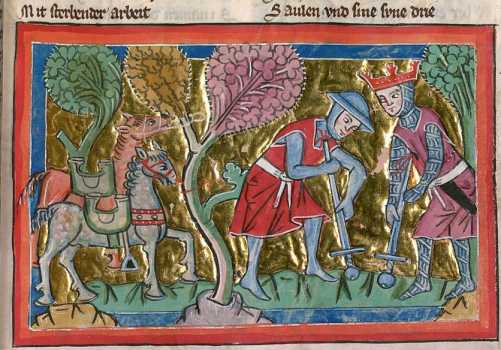 Mit sterbender arbeit
Saulen vnd sine svne drie